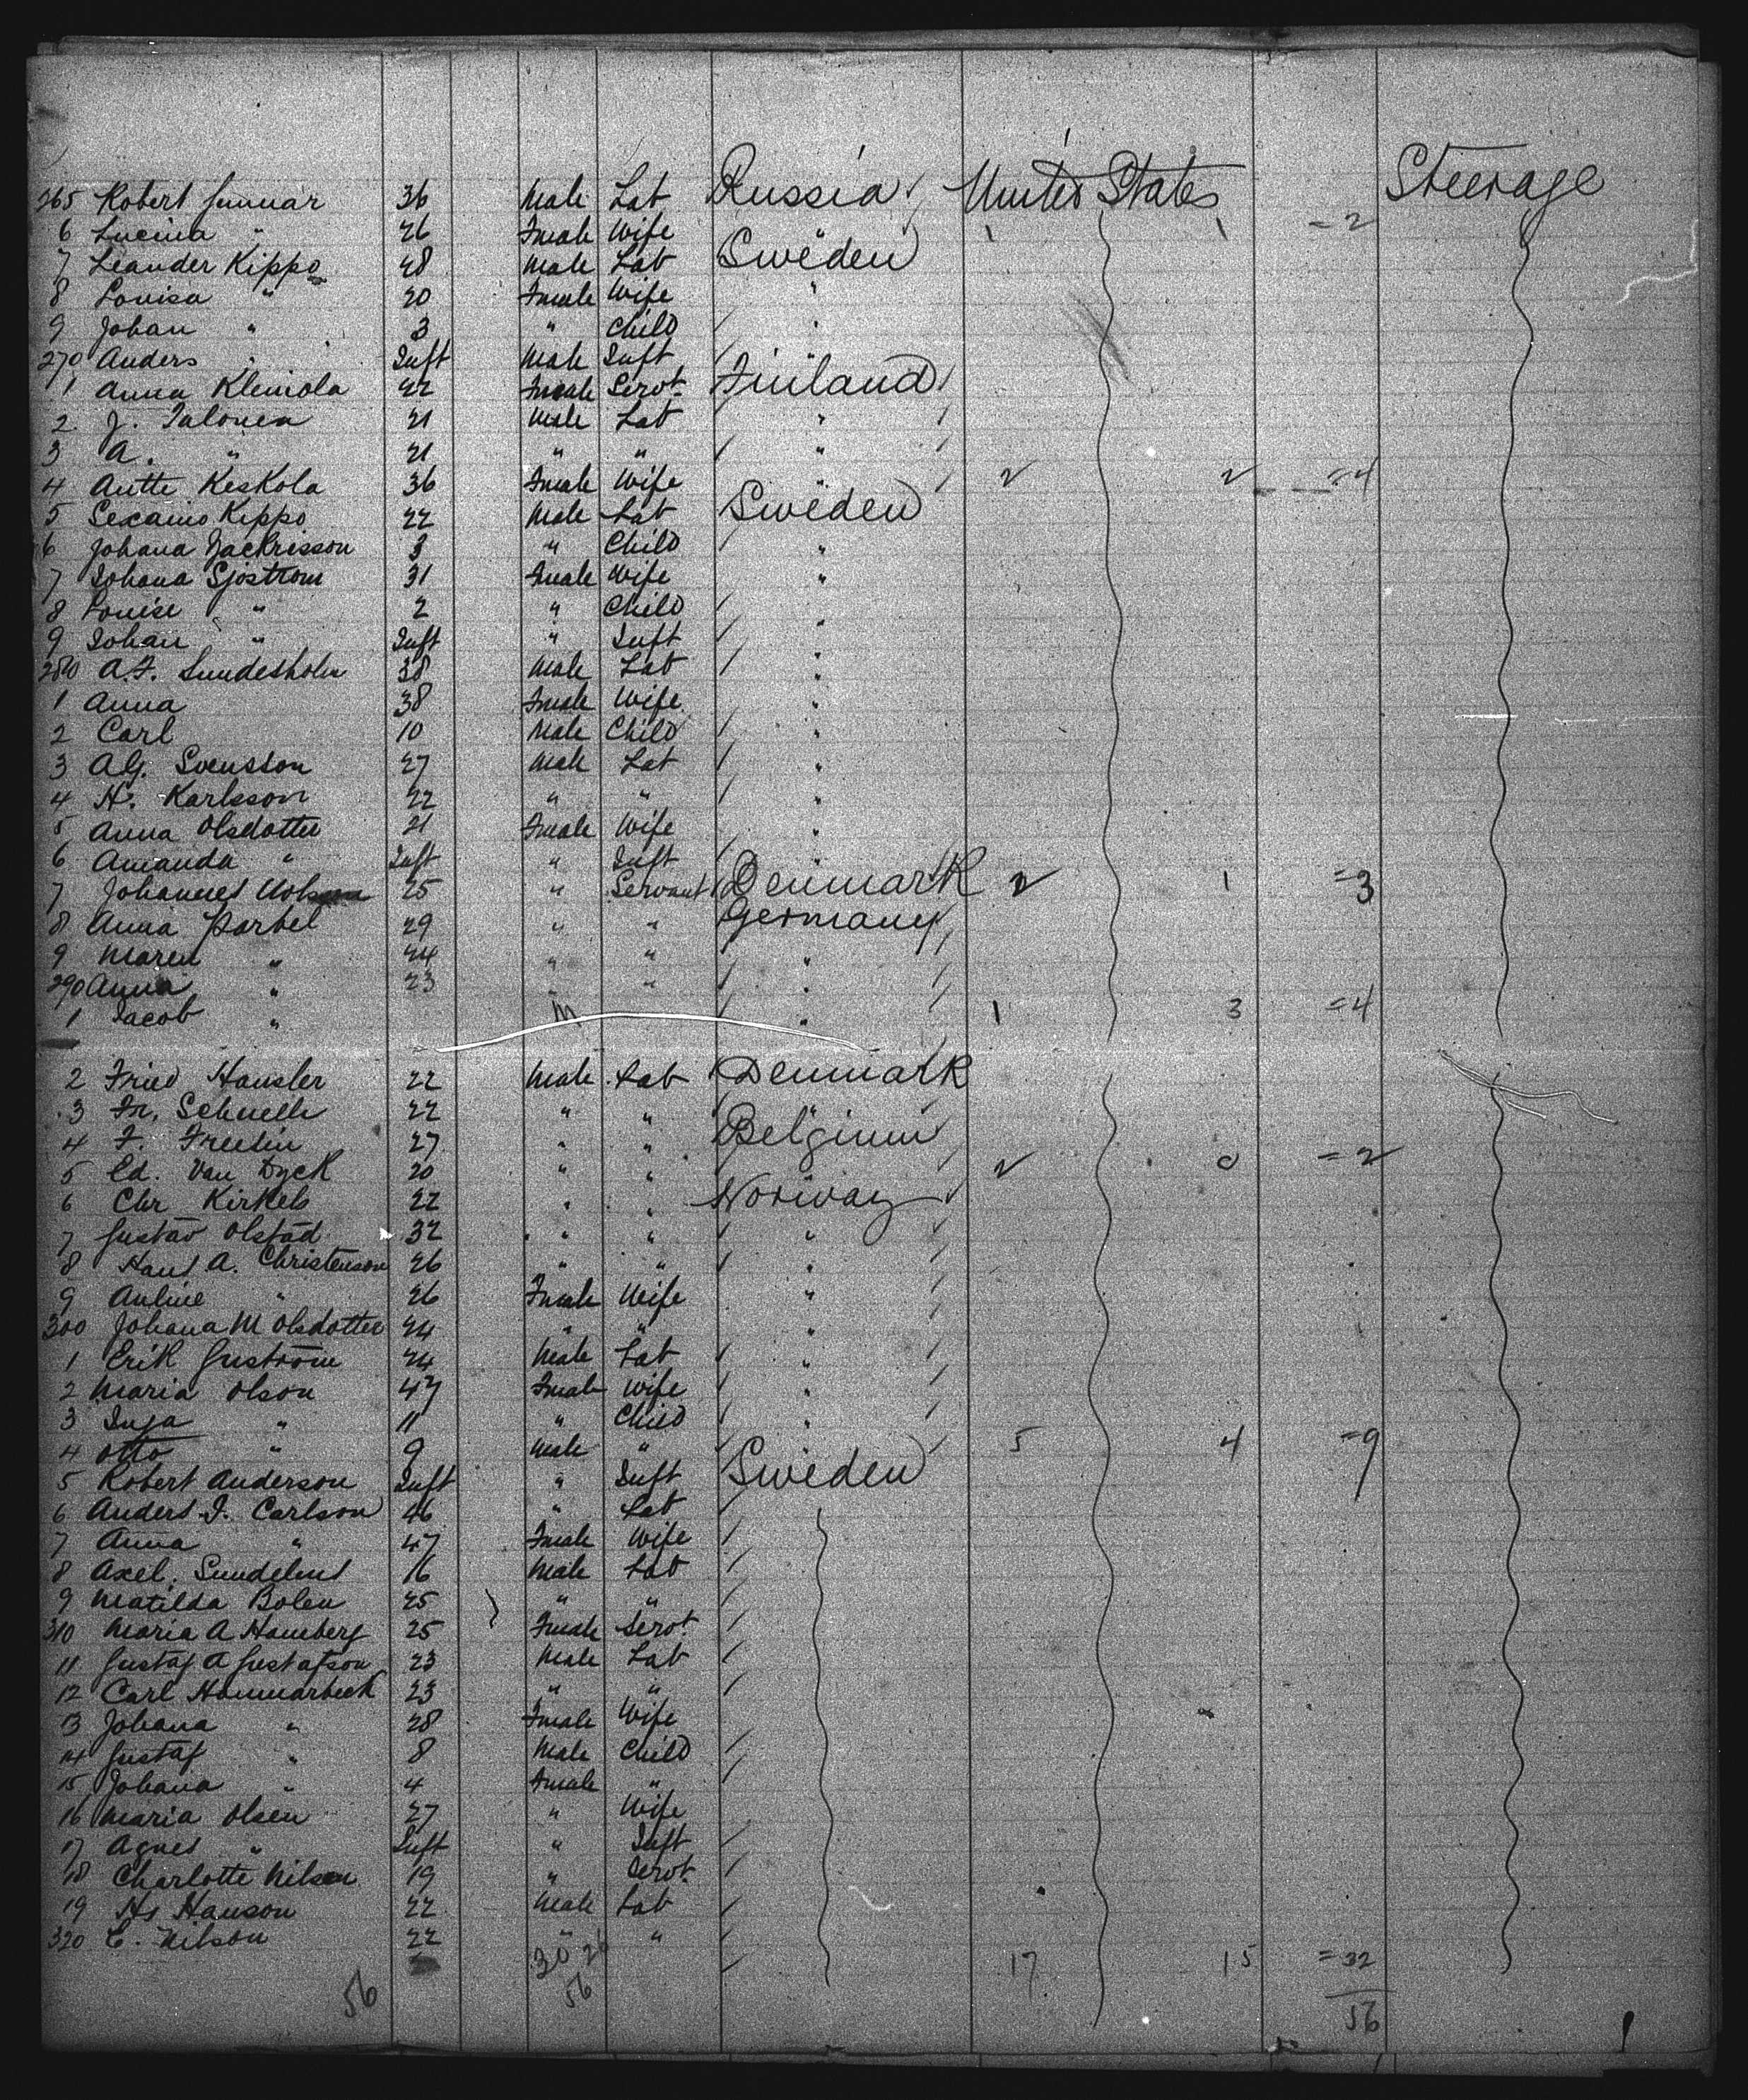 265 Robert Gunnar 36 Male Lab Russia United States Steerage
6 Lucina " 26 Fmale Wife 1 1 =2
7 Leander Kippo 28 Male Lab Sweden
8 Lovisa " 20 Fmale Wife "
9 Johan " 3 " Child "
270 Anders " Inft Male Inft
1 Anna Kleimola 22 Fmale Servt Finland
2 J. Talonen 21 Male Lab "
3 A. " 21 " " "
4 Antte Keskola 36 Fmale Wife 2 2 =4
5 Sexaino Kippo 22 Male Lab Sweden
6 Johana Zackrisson 3 " Child "
7 Johana Sjostrom 31 Fmale Wife "
8 Louise " 2 " Child "
9 Johan " Inft " Inft "
280 A.F. Sundesholm 38 Male Lab "
1 Anna 38 Fmale Wife "
2 Carl 10 Male Child "
3 A.G. Svensson 27 Male Lab "
4 N. Karlsson 22 " " "
5 Anna Olsdotter 21 Fmale Wife "
6 Amanda " Inft " Inft "
7 Johannes 25 " Servant Denmark 2 1 =3
8 Anna Parbel 29 " " Germany
9 Maren " 24 " " "
290 Anna " 23 " " "
1 Jacob " M " 1 3 =4
2 Fried Hansler 22 Male Lab Denmark
3 Fr. Schnelle 22 " " "
4 F. Freelin 27 " " Belgium
5 Ed. Van Dyck 20 " " 2 0 =2
6 Chr Kirkeb 22 " " Norway
7 Gustav Olstad 32 " " "
8 Hans A. Christenson 26 " " "
9 Auline " 26 Fmale Wife "
300 Johana M Olsdotter 24 " " "
1 Erik Gustrom 24 Male Lab "
2 Maria Olson 47 Fmale Wife "
3 Inga " 11 " Child "
4 Otto " 9 Male " 5 4 =9
5 Robert Anderson Inft " Inft Sweden
6 Anders J. Carlson 46 " Lab
7 Anna " 47 Fmale Wife
8 Axel. 16 Male Lab
9 Matilda Bolen 25 " "
310 Maria A Hamberg 25 Fmale Servt
11 Gustaf A Gustafson 23 Male Lab
12 Carl Hammarbeck 23 " "
13 Johana " 28 Fmale Wife
14 Gustaf " 8 Male Child
15 Johana " 4 Fmale "
16 Maria Olsen 27 " Wife
17 Agnes " Inft " Inft
18 Charlotte Nilsen 19 " Servt
19 Hs Hanson 22 Male Lab
320 C. Nilson 22 " "
30 26 17 15 =32
56 56 56